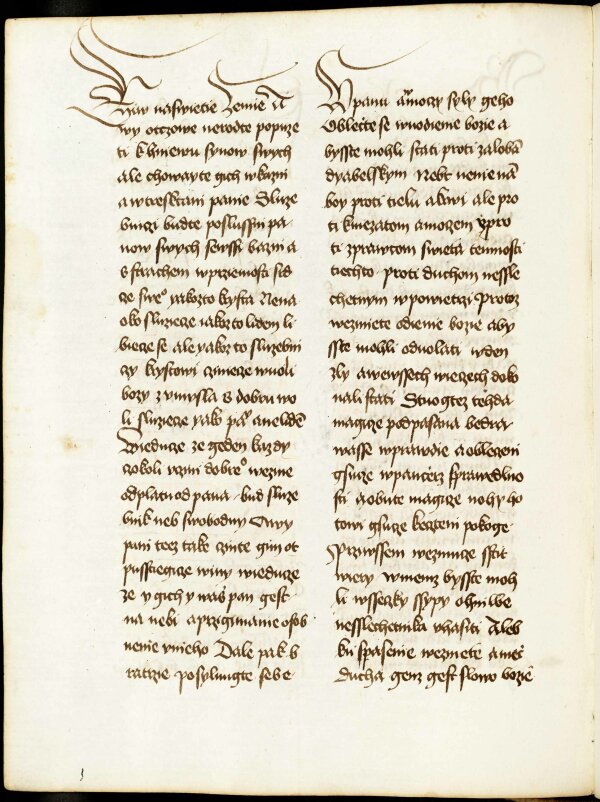 wy otczowe nerodte popuze
ti k hniewu synow swych
ale chowayte gich w kazni
a w tresktani panie Sluze
bnizi budte poslussni pa
now swych sewssi bazni a
s strachem w prziemosti srd
ze swe° yakozto kysta Nena
oko sluziecze iakozto lidem li
bicze se ale yakozto sluzebni
zy krystowi czinicze wuoli
bozy z vmysla s dobru wo
li sluziecze yako
Wieducze ze geden kazdy
czokoli vczini dobre° wezme
odplatu od pana bud sluze
bnik neb swobodny A wy
pani teez take czinte gim ot
pusstiegicze winy wieducze
ze y gich y was pan gest
na nebi a przigimanie osob
nenie v nieho Dale pak b
ratrzie posylnugte se be
W panu a w moczy syly geho
Oblecte se w uodienie bozie a
byste mohli stati proti zalobam
dyabelskym Nebt nenie nam
boy proti tielu a krwi ale pro
ti kniezatom a moczem y pro
ti zprawcom swieta temnosti
tiechto proti duchom nessle
chetnym w powietrzi Protoz
wezmiete odienie bozie aby
sste mohli odolati w den
zly a we wssech wieczech doko
nali stati Stuogtez tehda
magicze podpasana bedra
wasse w prawdie a obleczeni
gsucze w pancierz sprawedlno
sti a obute magicze nohy ho
towi gsucze k czteni pokoge
Przewssem wezmucze sstit
wiery w niemz byste moh
li wssecky ssypy ohniwe
nesslechetnika vhasiti A leb
ku spasenie wezmete a mecz
ducha genz gest slowo bozie